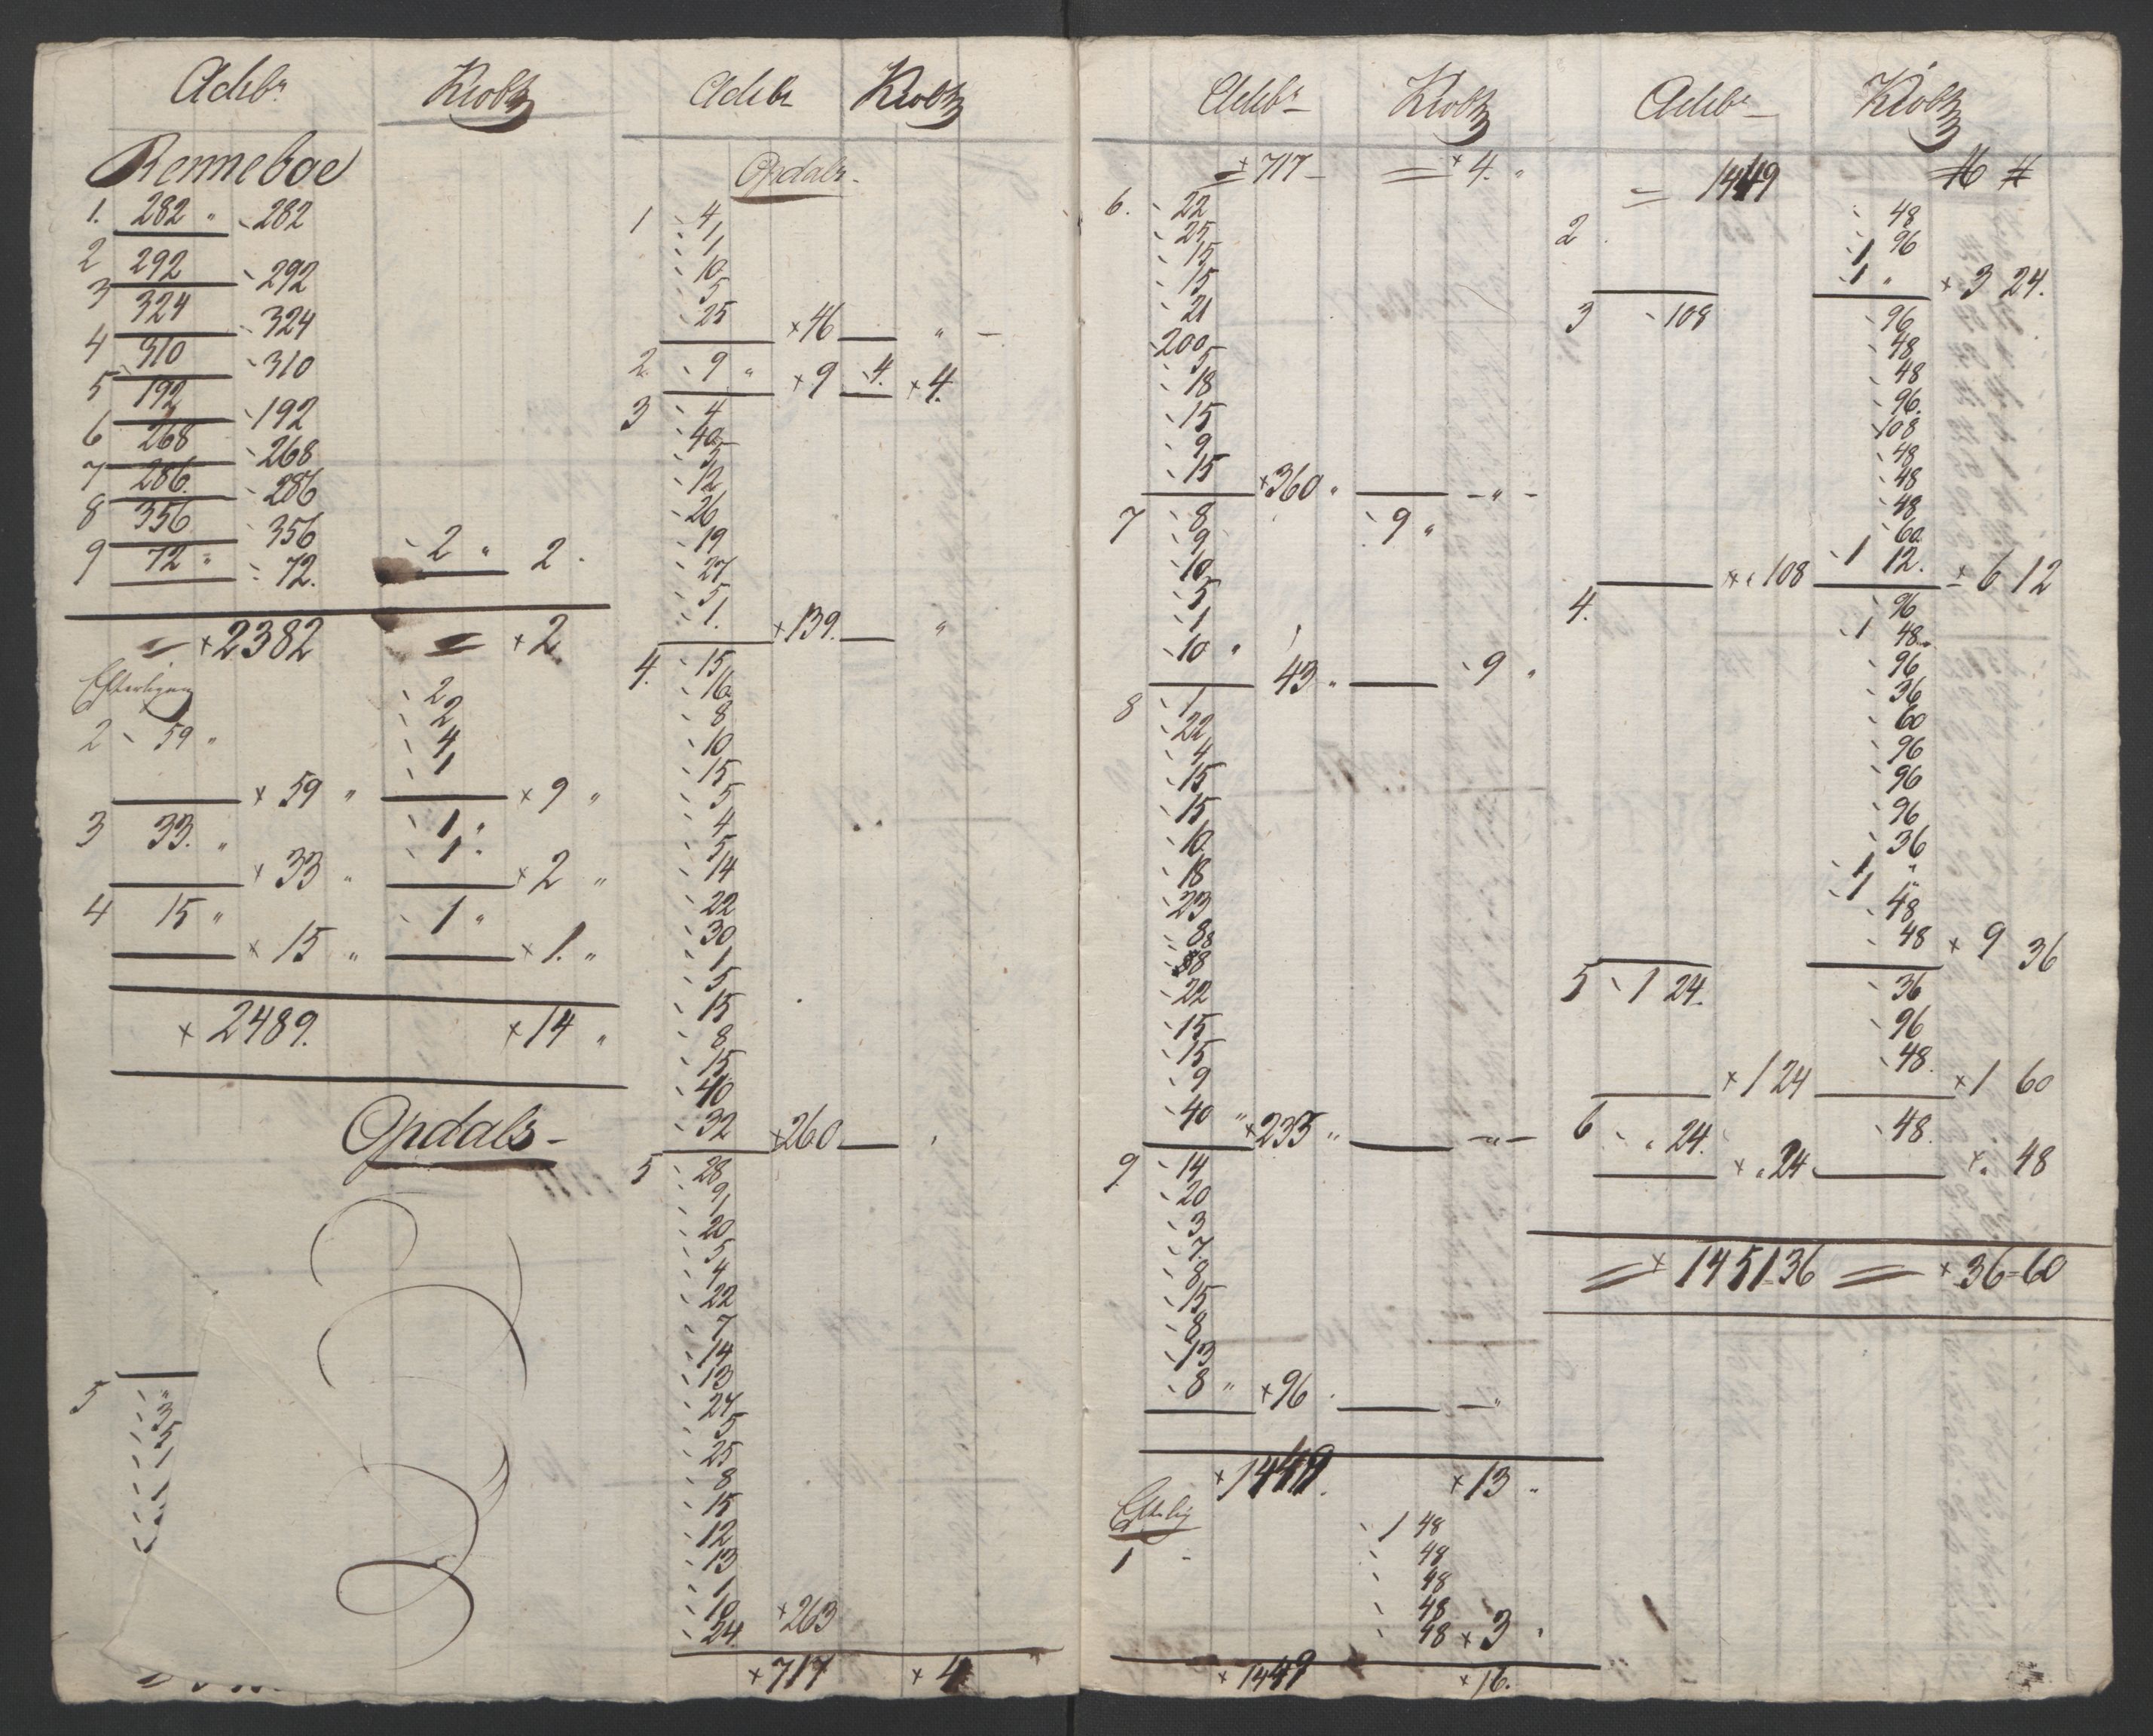 Achbr Kiolbz
Renneboe
1. 282 " 282
2 292 292
3 324 324
4 310 310
5 192 192
6 268 268
7 286. 286
8 356 356
9 72 " 72. 2 " 2.
= x 2382 = x 2
2
2
2 59 " 4
1
x 59 " x 9 "
3 33. " 1 "
1 "
x 33 " x 2 "
4 15 " 1 "
x 15 " x 1. "
x 2489. x 14 "
Opdals-
5 "
3
5
1
Achbr Kiolbz
Opdals-
1 4
1
1
10
5
25 x 46 " -
2. 9 " x 9 4. x 4.
3 4
40
5
12
26
19
27
5
1. x 139. "
4. 15
16
8
10
15
5
4
5
14
22
30
1
5
15
8
15
40
32 x 260 "
5 28
9
1
20
5
4
22
7
14
13
27
5
25
8
15
12
13
1
10 x 263
24
x 717 x 4
Achbr Kiolbz
= x 717 - = x 4. "
6. 22
25
15
15
21
200
5
18
15
9
15 x 360 " - " -
7 8 9 "
9
10
5
1
10 "
43 " 9 "
8 1
22
4
15
15
10
18
23
8
18
22
15
15
9
40 " x 235 " - " -
9 14
20
3
7
8
15
8
13
8 " x 96 . - "
x 1449. x 13 "
Efterlig
1 - 1 48
48
48
48
48 x 3 "
x 1449 x 16.
Achbr Kiolbz
= 1449 16 "
2 48
96
1
1 " x 3 24.
3 108 96
48
48
96.
108
48
48
48
60
1 12.
x " 108 x 6 12
4. 96
1 48
96
36
60
96
96
96
36
1 "
1 48
48 x 9 36
5 1 24. 36
96
48.
x 1 24 x 1 60
6 " 24. 48.
x " 24 x " 48
= x 1451 36 = x 36=60